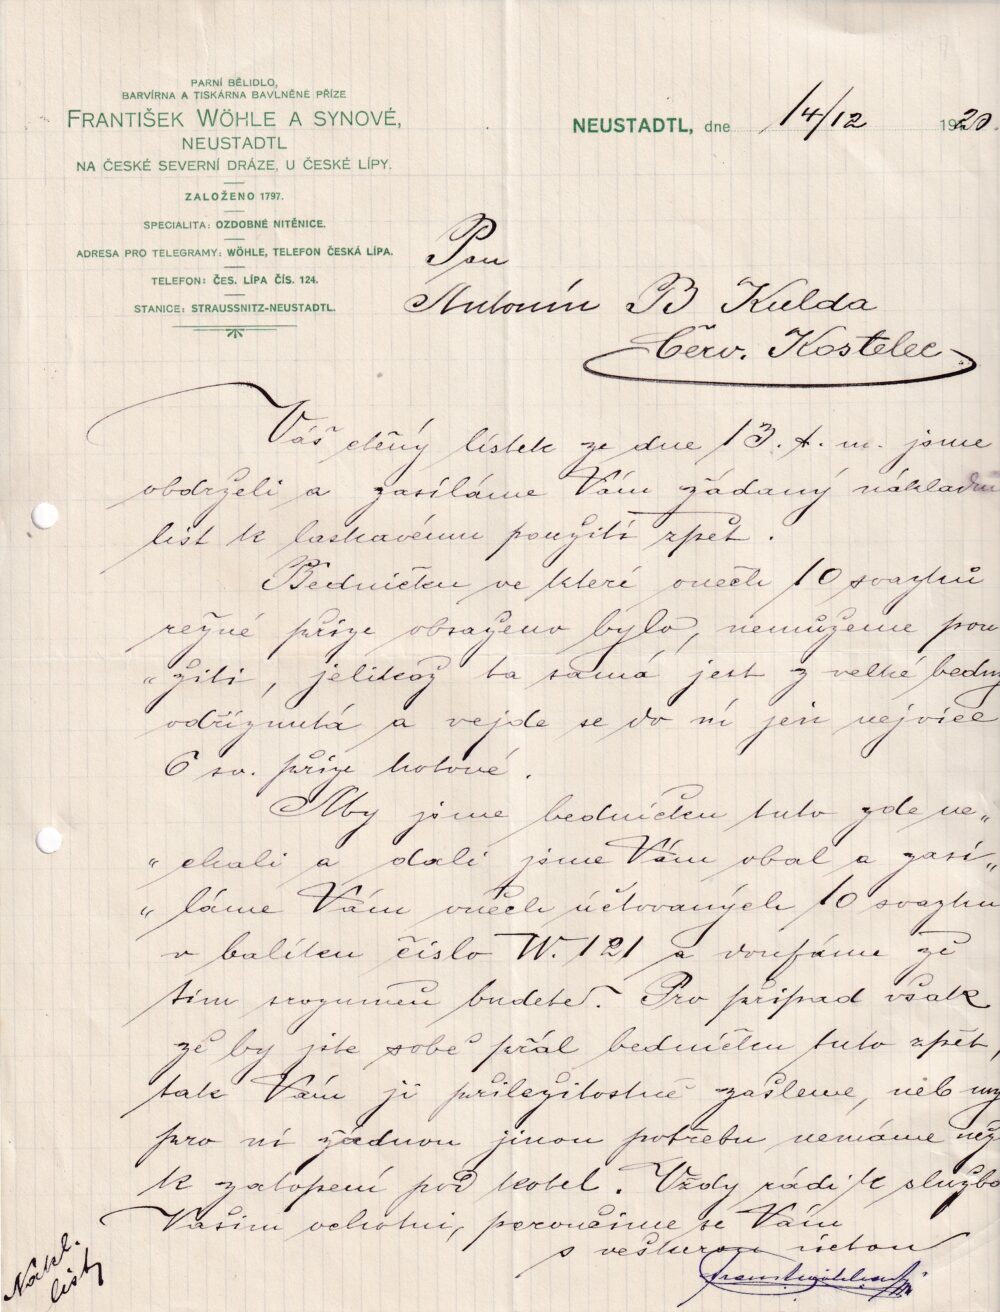 PARNÍ BĚLIDLO,
BARVÍRNA A TISKÁRNA BAVLNĚNÉ PŘÍZE
FRANTIŠEK WÖHLE A SYNOVÉ,
NEUSTADTL
NA ČESKÉ SEVERNÍ DRÁZE, U ČESKÉ LÍPY.
ZALOŽENO 1797.
SPECIALITA: OZDOBNÉ NITĚNICE.
ADRESA PRO TELEGRAMY: WÖHLE, TELEFON ČESKÁ LÍPA.
TELEFON: ČES. LÍPA ČÍS. 124.
STANICE: STRAUSSNITZ-NEUSTADTL.
NEUSTADTL, dne 14/12 1920.
Pan
Antonín B Kulda
Červ. Kostelec
Váš ctěný lístek ze dne 13. t. m. jsme
obdrželi a zasíláme Vám žádaný nákladní
list k laskavému použití zpět.
Bedničku ve které oněch 10 svazků
režné příze obsaženo bylo, nemůžeme pou
„žíti, jelikož ta samá jest z velké bedny
odříznutá a vejde se do ní jen nejvíce
6 sv. příze hotové.
Aby jsme bedničku tuto zde ne„
„chali a dali jsme Vám obal a zasí„
„láme Vám oněch účtovaných 10 svazků
v balíku číslo W. 121 a doufáme že
tím srozuměn budete. Pro případ však
že by jste sobě přál bedničku tuto zpět,
tak Vám ji příležitostně zašleme, neb my
pro ní žádnou jinou potřebu nemáme než
k zatopení pod kotel. Vždy rádi k službám
Vašim ochotni, poroučíme se Vám
s veškerou úctou
Nákl.
listy